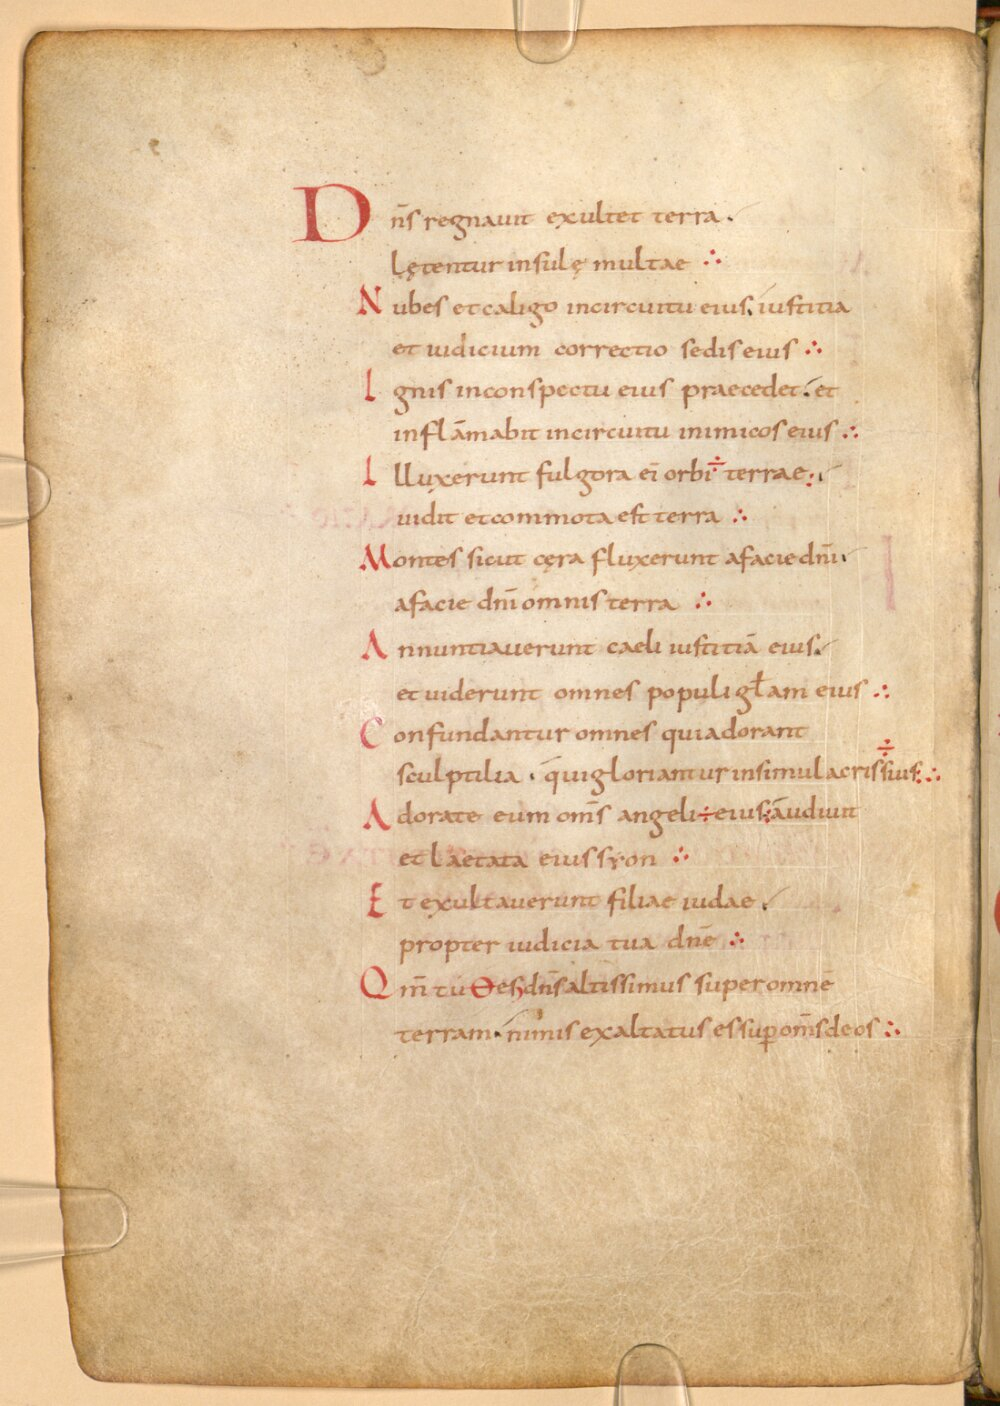 Dn̄s regnauit exultet terra.
Lętentur insulę multae ∴
Nubes et caligo incircuitu eius. iustitia
et iudicium correctio sedis eius ∴
Ignis inconspectu eius praecedet. et
inflāmabit incircuitu inimicos eius ∴
Illuxerunt fulgora ei orbi ÷ terrae:
uidit et commota est terra ∴
Montes sicut cęra fluxerunt afacie dn̄i.
afacie dn̄i omnis terra ∴
Annuntiauerunt caeli iustitiā eius.
et uiderunt omnes populi gl̄am eius ∴
Confundantur omnes qui adorant
sculptilia. q̄ui gloriantur in simulacris ÷ suis: ∴
Adorate eum om̄s angeli ÷ eius: audiuit
et laetata eius syon ∴
Et exultauerunt filiae iudae.
propter iudicia tua dn̄e ∴
Qm̄ tu es dn̄s altissimus super omnē
terram. nimis exaltatus es sup̱ om̄s deos ∴